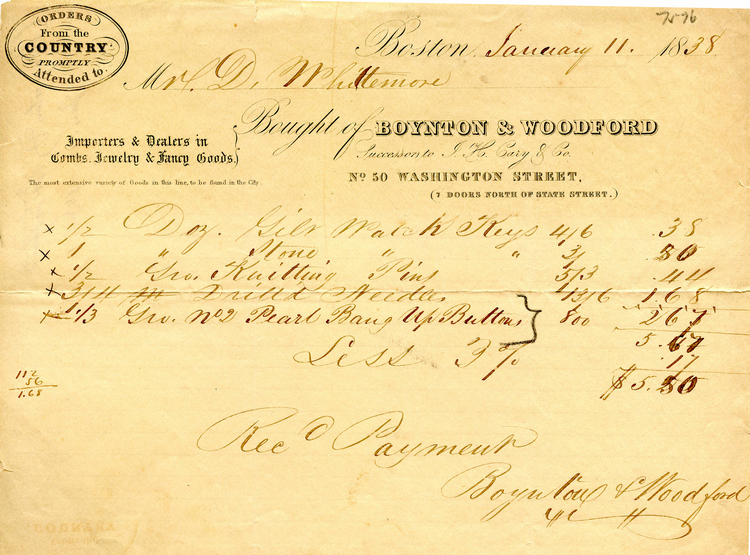 72-96
ORDERS
From the
COUNTRY
PROMPTLY
Attended to.
Boston January 11. 1838
Mr. D. Whittemore
Importers & Dealers in
Combs, Jewelry & Fancy Goods.
Bought of BOYNTON & WOODFORD
Successors to J. H. Cary & Co.
The most extensive variety of Goods in this line, to be found in the City.
No 50 WASHINGTON STREET,
(7 DOORS NORTH OF STATE STREET.)
x 1/2 Doz. Gilt Watch Keys 4/6 .38
x 1 " Stone " " 3/ .50
x 1/2 Gro. Knitting Pins 5/3 .44
x 3/4 M Drilld Needles 13/6 1.68
x 1.1/3 Gro. No2 Pearl Bang Up Buttons 800 2.67
5.67
Less 3% .17
$5.50
112
56
1.68
Rec'd Payment
Boynton & Woodford